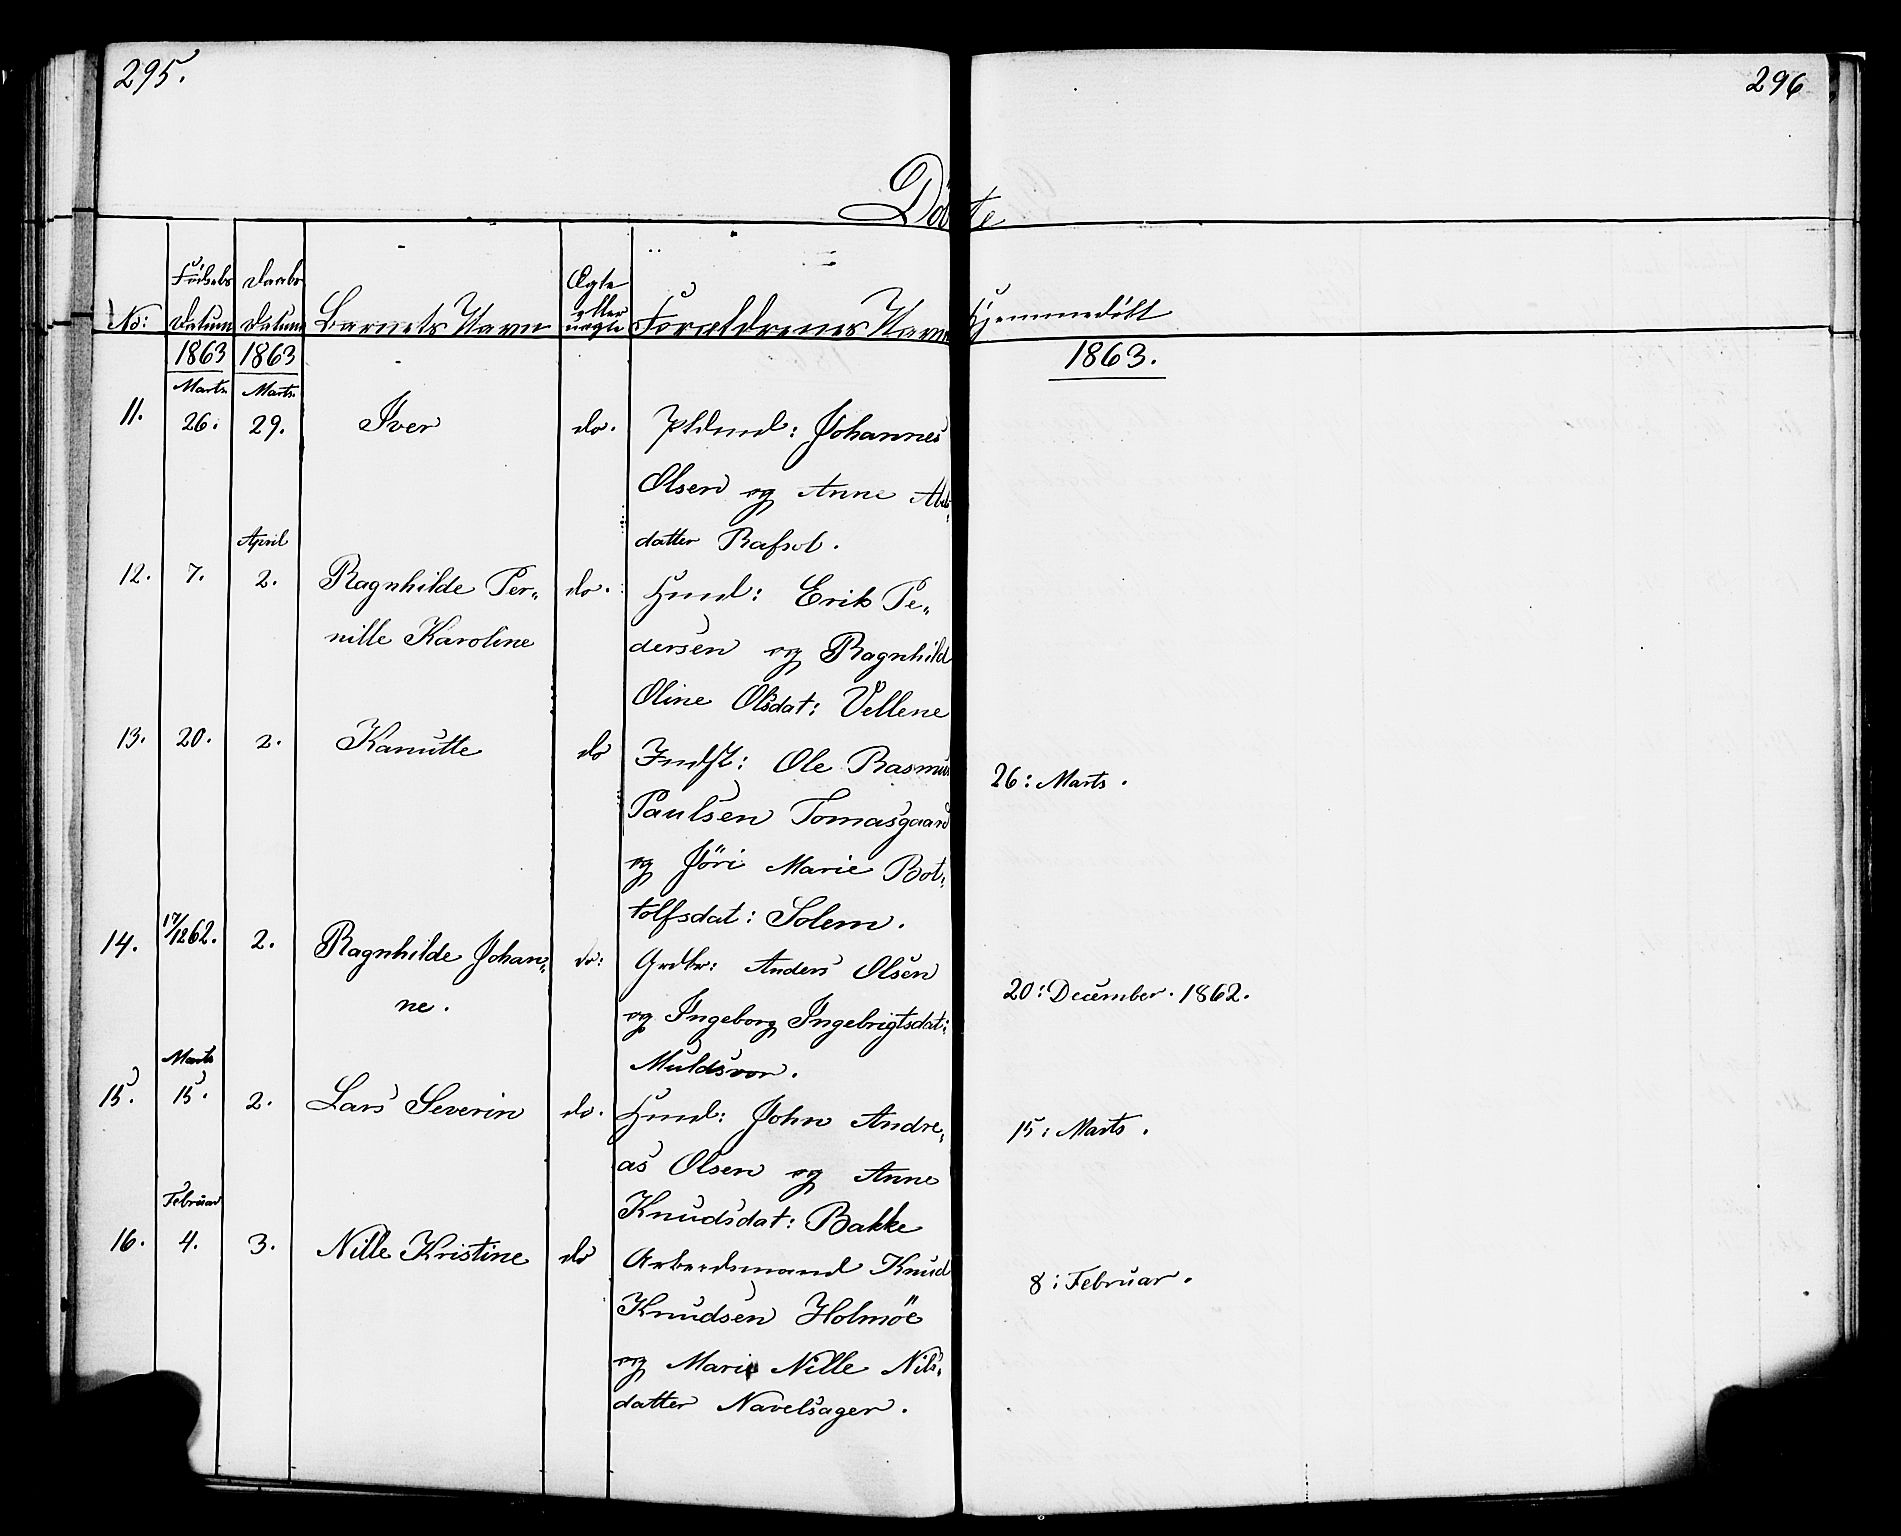 295.
296
Döbte
No:
Födsels
Datum
Daabs
Datum
Barnets Navn
Ægte
eller
uægte
Forældrenes Navn
Hjemmedöbt
1863
1863
1863.
Marts.
Marts.
11.
26.
29.
Iver
do.
Johannes
Olsen og Anne Abel-
datter Rafsol.
April
12.
7.
2.
Ragnhilde Per-
nille Karoline
do.
Hmd: Erik Pe-
dersen og Ragnhild
Oline Olsdat: Vellene
13.
20.
2.
Kanutte
do
Indst: Ole Rasmus
Paulsen Tomasgaard
og Jöri Marie Bot-
tolfsdat: Solem.
26: Marts.
14.
17/12 62.
2.
Ragnhilde Johan-
ne.
do:
Grdbr: Anders Olsen
og Ingeborg Ingebrigtsdat:
Muldsvor.
20: December. 1862.
Marts
15.
15.
2.
Lars Severin
do.
Hmd: John Andre-
as Olsen og Anne
Knudsdat: Bakke
15: Marts.
Februar
16.
4.
3.
Nille Kristine
do
Arbeidsmand Knud
Knudsen Holmöe
og Marie Nille Nils-
datter Navelsager.
8: Februar.